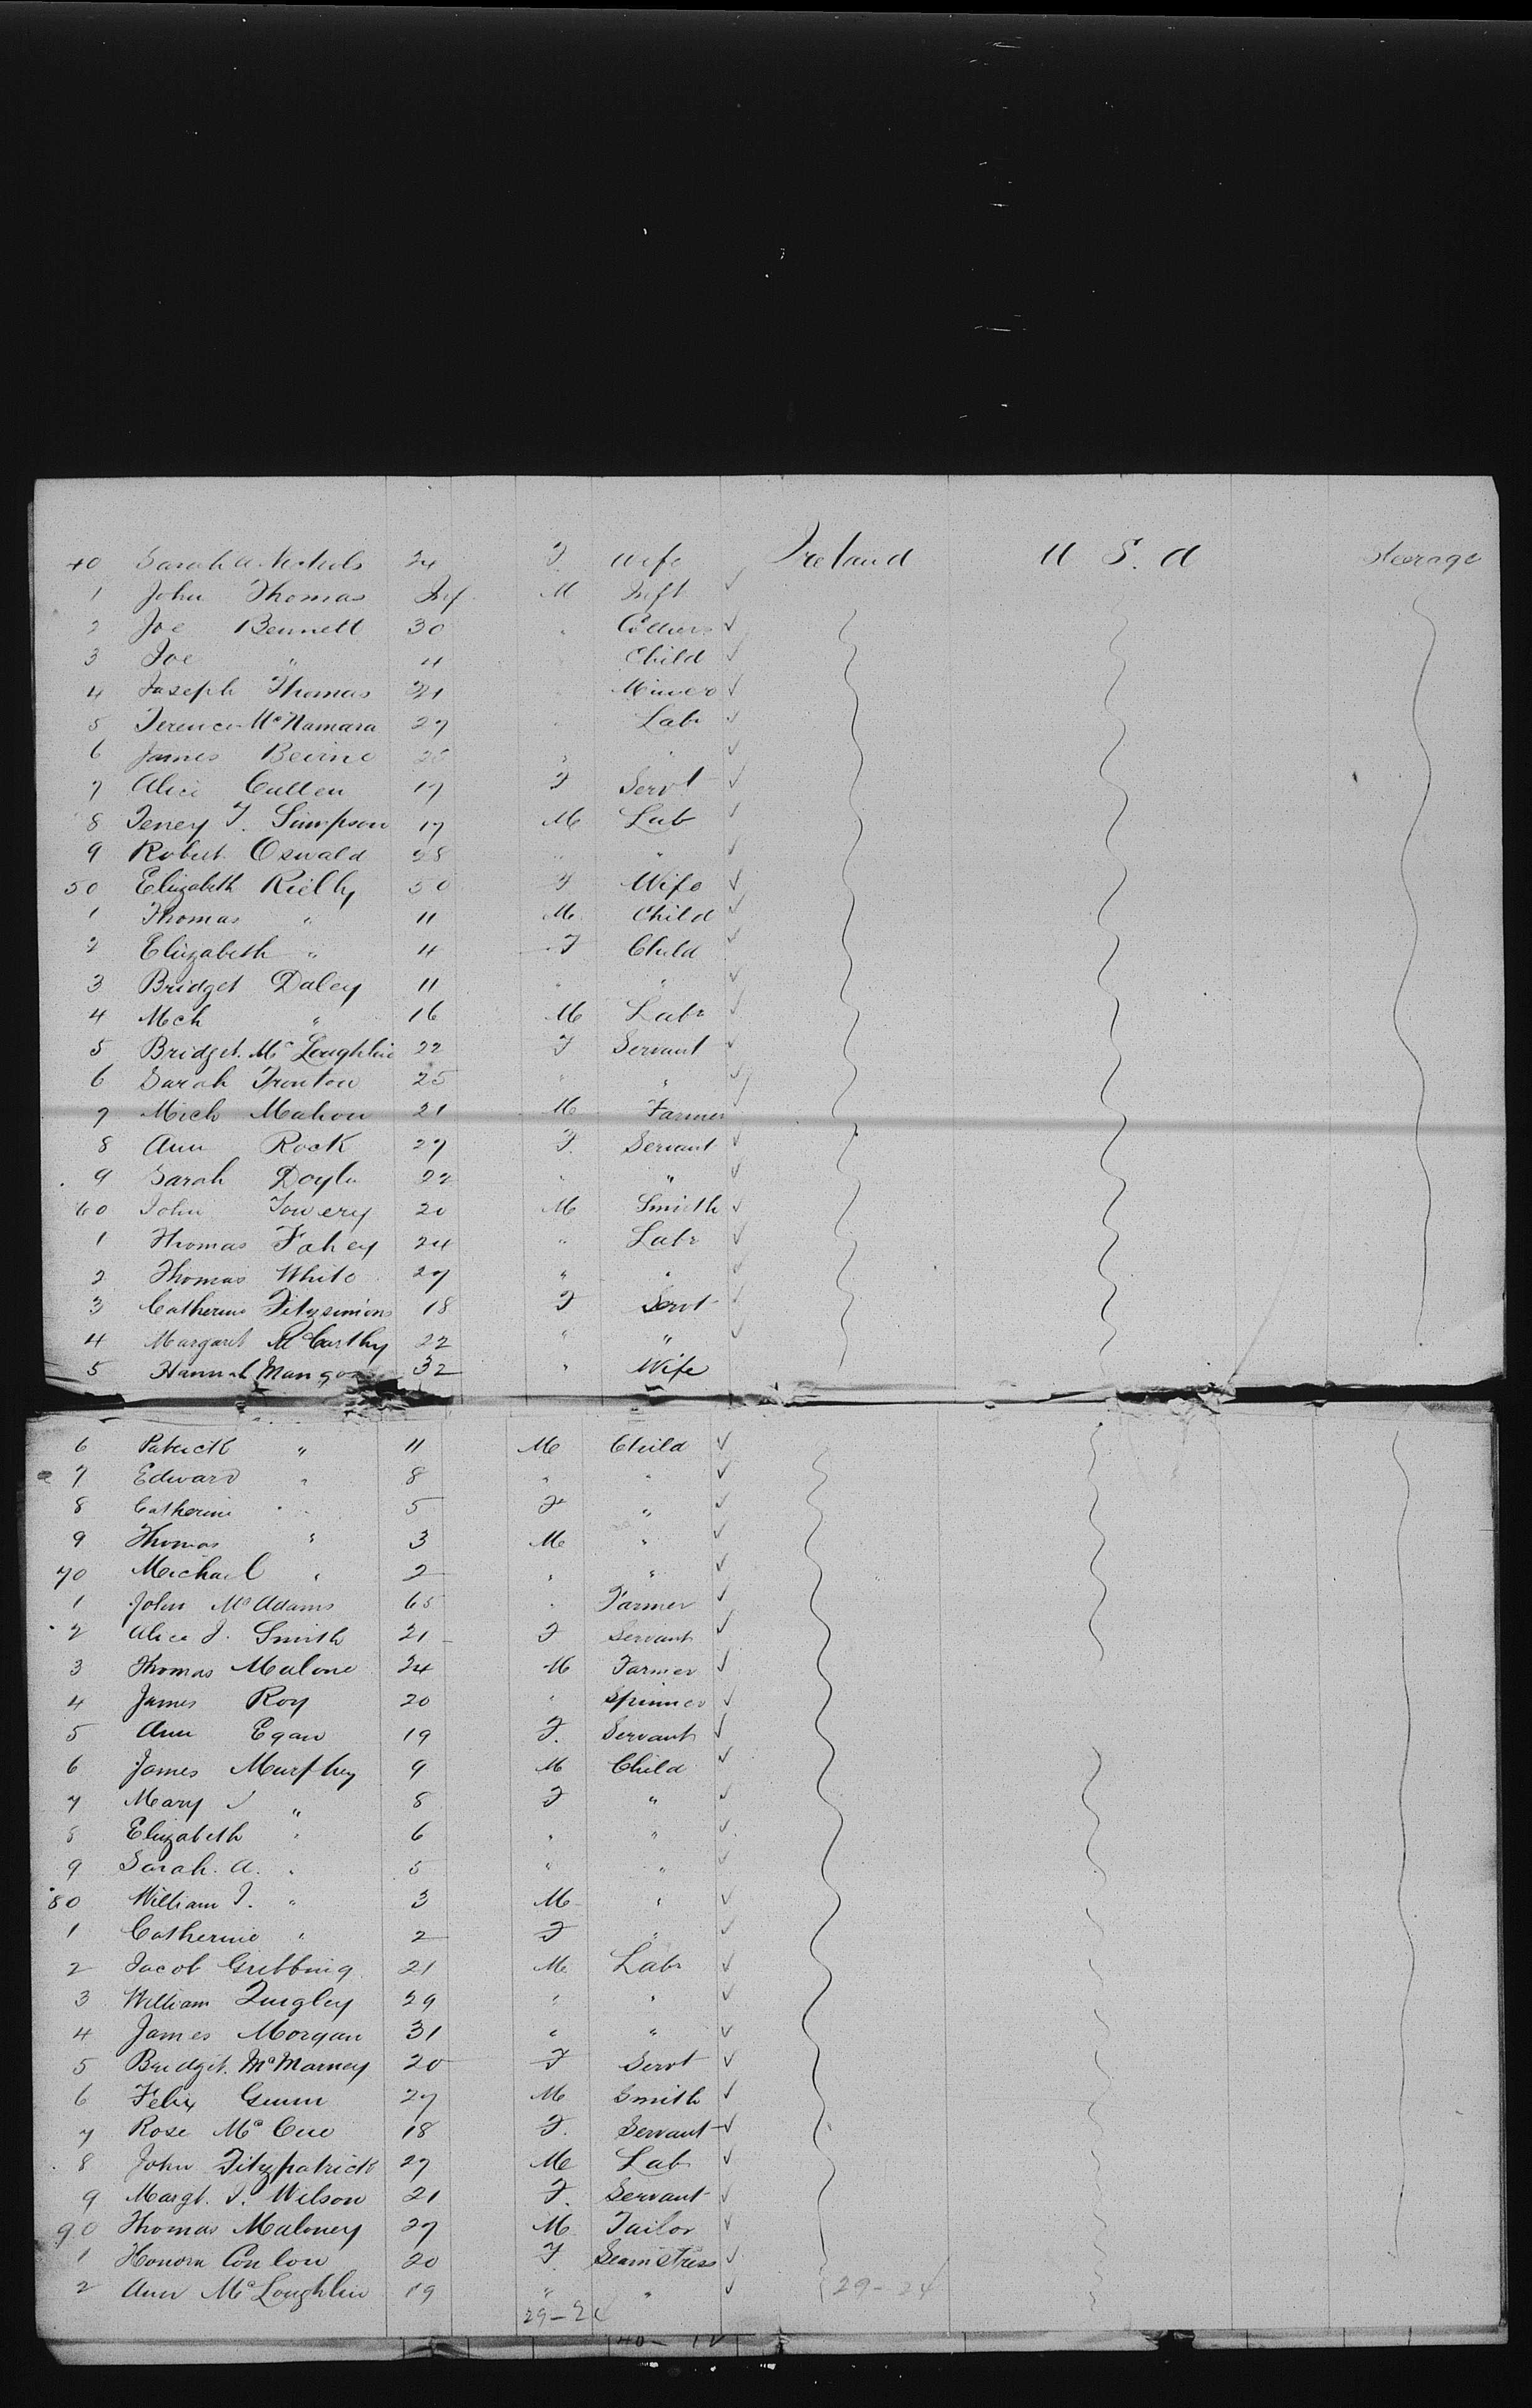 40 Sarah A. Nichols 24 F Wife Ireland U S. A Steerage
1 John Thomas Inf M Inft
2 Joe Bennett 30 "
3 Joe " 4 Child
4 Joseph Thomas 21 Miner
5 Terence McNamara 27 Labr
6 James Beirne " "
7 Alice Cullen 17 F Servt
8 T. Simpson 17 M Lab
9 Robert Oswald 28 " "
50 Elizabeth Rielly 50 F Wife
1 Thomas " 11 M Child
2 Elizabeth " 4 F Child
3 Bridget Daley 11 " "
4 Mch " 16 M Labr
5 Bridget. McLoughlin 22 F Servant
6 Sarah 25 " "
7 Mich Mahon 21 M Farmer
8 Ann Rock 27 F. Servant
9 Sarah Doyle 22 " "
60 John Towery 20 M Smith
1 Thomas Fahey 24 " Labr
2 Thomas White 27 " "
3 Catherine Fitzsimions 18 F Servt
4 Margaret McCarthy 22 " "
5 Hannah Mangan 32 " Wife
6 Patrick " 11 M Child
7 Edward " 8 " "
8 Catherine " 5 F "
9 Thomas " 3 M "
70 Michael " 2 " "
1 John McAdams 65 " Farmer
2 Alice J. Smith 21 F Servant
3 Thomas Malone 24 M Farmer
4 James Roy 20 " Spinner
5 Ann Egan 19 F. Servant
6 James Murphy 9 M Child
7 Mary J " 8 F "
8 Elizabeth " 6 " "
9 Sarah. A. " 5 " "
80 William J. " 3 M "
1 Catherine " 2 F "
2 Jacob Gribbing 21 M Labr
3 William Quigley 29 " "
4 James Morgan 31 " "
5 Bridgit. McMarney 20 F Servt
6 Felix Gunn 27 M Smith
7 Rose McCue 18 F. Servant
8 John Fitzpatrick 27 M Lab
9 Margt. J. Wilson 21 F. Servant
90 Thomas Maloney 27 M Tailor
1 Honora Conlon 20 F Seamstress
2 Ann McLoughlin 19 " " 29-24
29-24